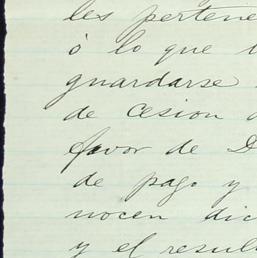 les pertene
ó lo que
guardarse
de cesion
favor de D
de pago y
nocen dic
y el resul